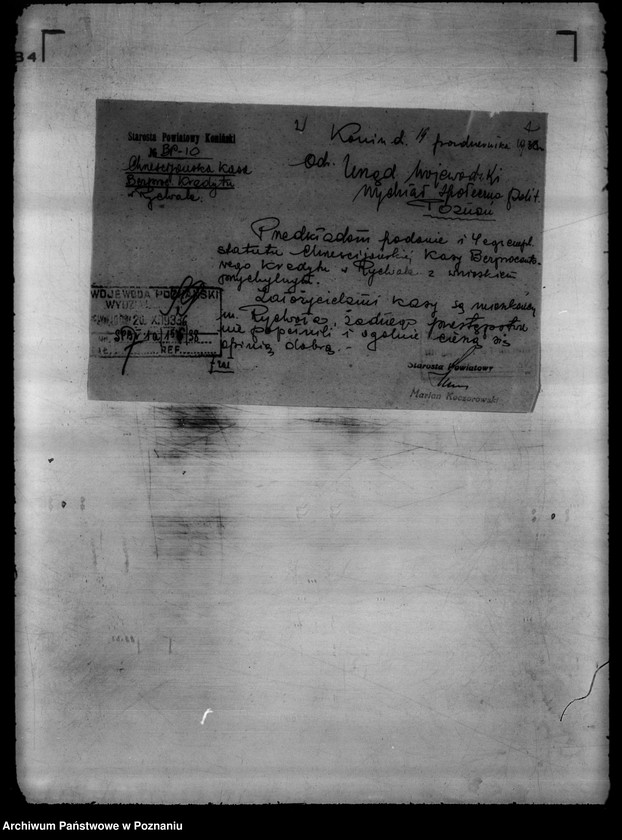 34
2/
Starosta Powiatowy Koniński
№ BP-10
Chrześcijańska Kasa
Bezproc. Kredytu
w Rychwale.
Konin d. 19 października 1938 r.
Do. Urząd Wojewódzki
Wydział Społeczno polit.
Poznań
Przedkładam podanie i 4 egzempl.
statutu Chrześcijańskiej Kasy Bezprocento-
wego Kredytu w Rychwale z wnioskiem
przychylnym.
Założycielami kasy są mieszkańcy
m. Rychwała, żadnego przestępstwa
nie popełnili i ogólnie cieszą się
opinią dobrą. -
WOJEWODA POZNAŃSKI
20. X. 1938
REF.
Starosta Powiatowy
Marian Kaczorowski
Archiwum Państwowe w Poznaniu